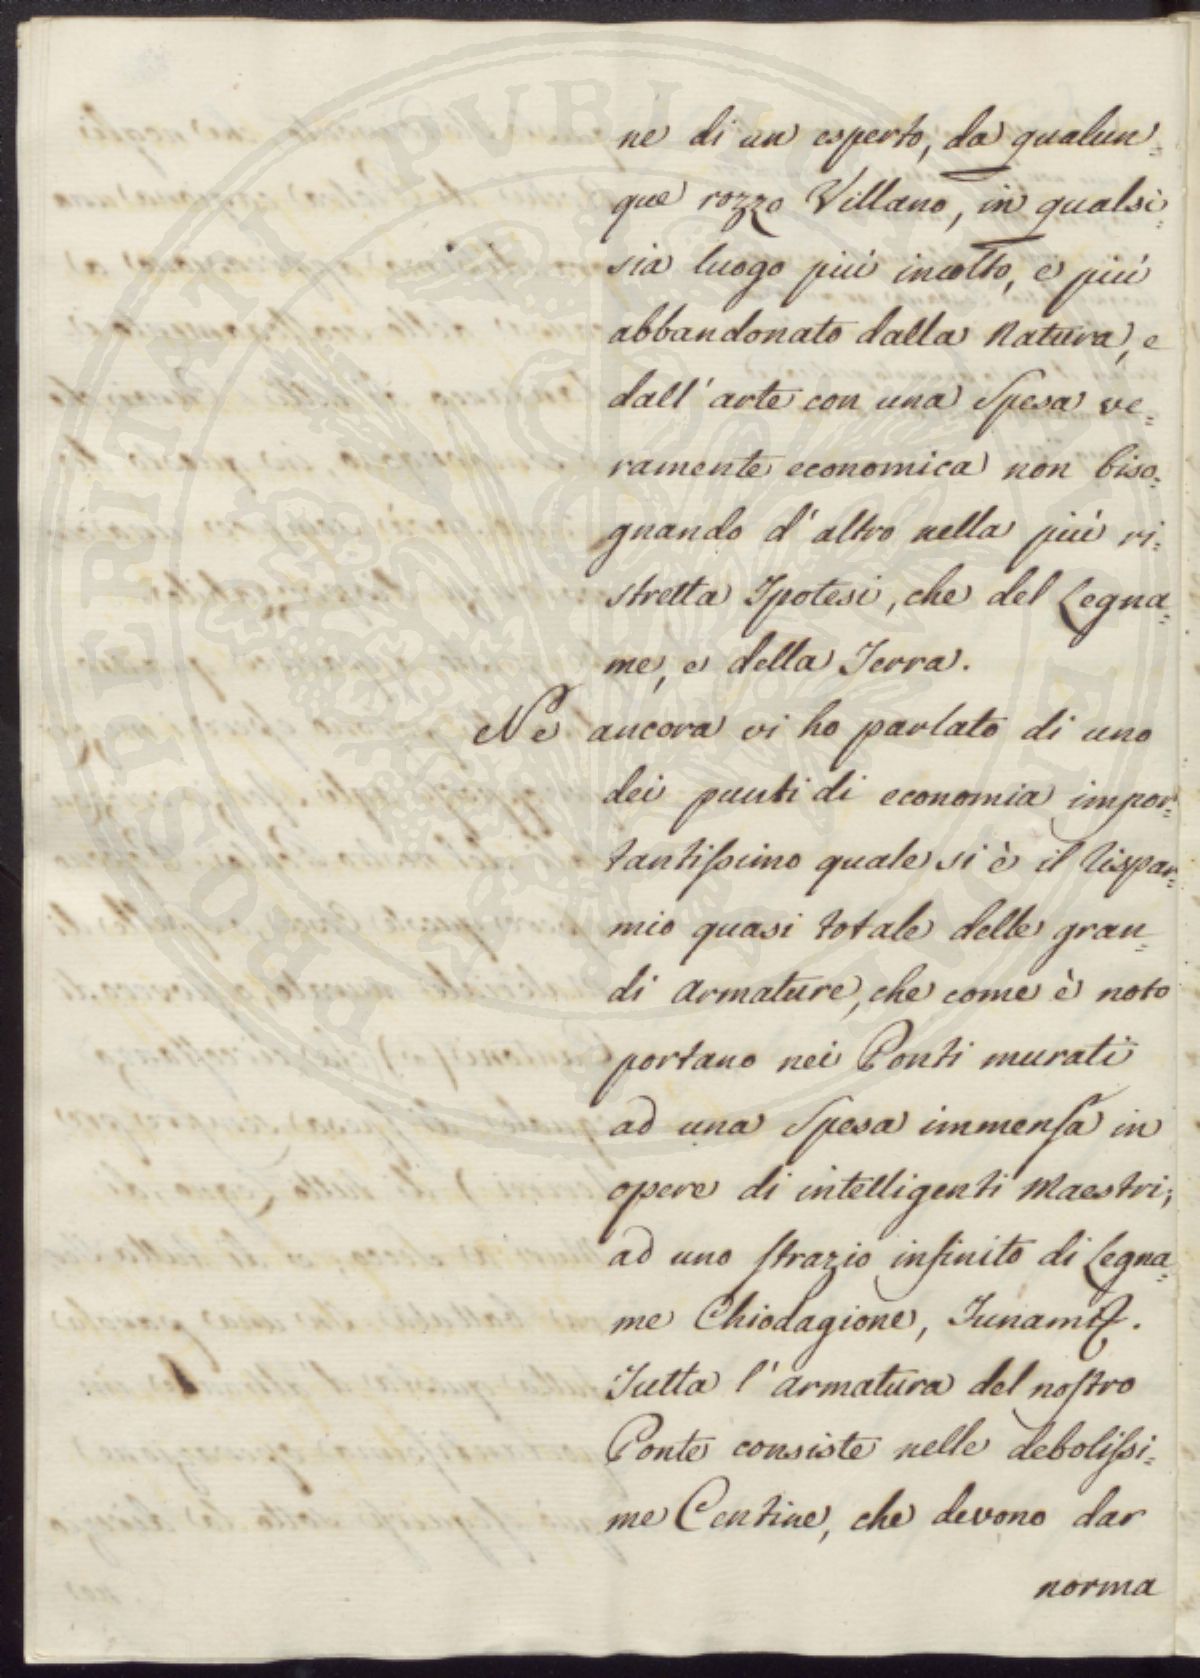 ne di un esperto, da qualun=
que rozzo Villano, in qualsi=
sia luogo più incolto, e più
abbandonato dalla Natura, e
dall' arte con una Spesa ve=
ramente economica non biso=
gnando d' altro nella più ri=
stretta Ipotesi, che del Legna=
me, e della Terra.
Ne ancora vi ho parlato di uno
dei punti di economia impor=
tantissimo quale si è il rispar=
mio quasi totale delle gran=
di armature, che come è noto
portano nei Ponti murati
ad una Spesa immensa in
opere di intelligenti Maestri;
ad uno strazio infinito di Legna=
me Chiodagione, Funami &.
Tutta l' armatura del nostro
Ponte consiste nelle debolissi=
me Centine, che devono dar
norma
PROSPERITATI PUBLICAE